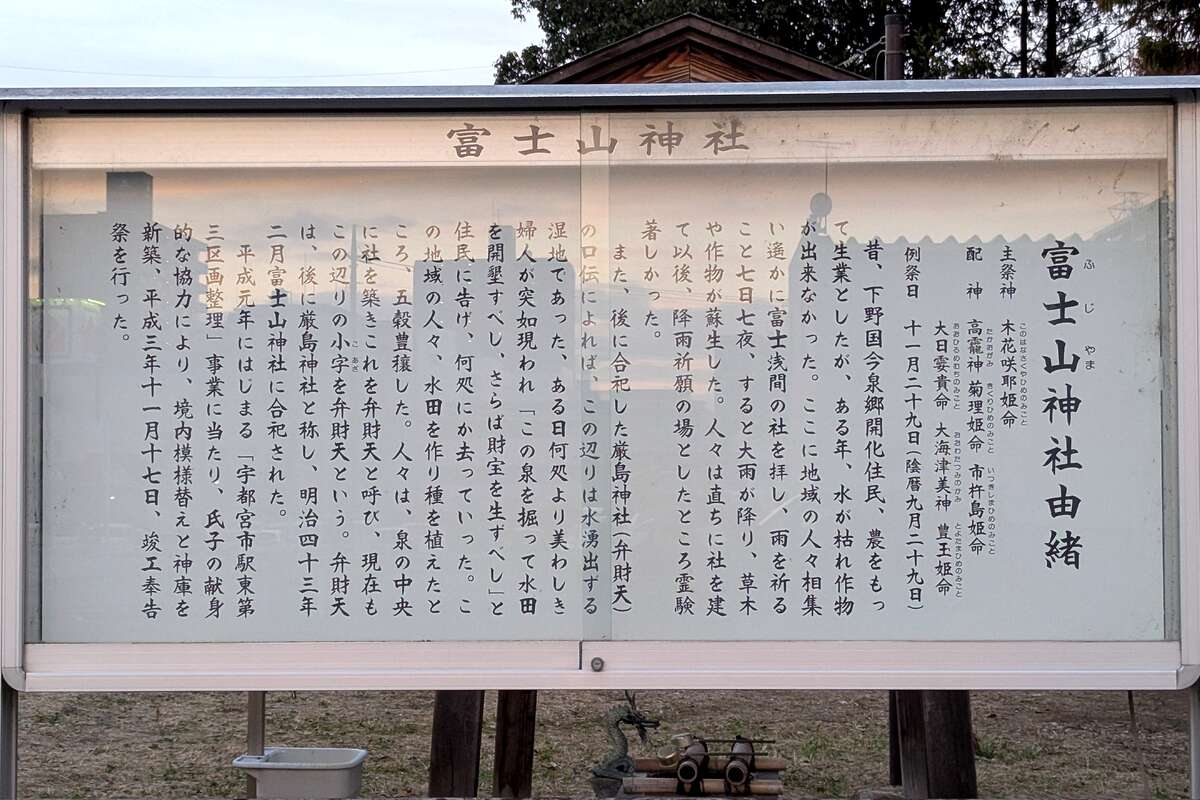 富士山神社
富士山神社由緒
ふじ やま
主祭神 木花咲耶姫命
このはなさくやひめのみこと
配神 高龗神 菊理姫命 市杵島姫命
たかおがみ きくりひめのみこと いつきしまひめのみこと
大日孁貴命 大海津美神 豊玉姫命
おおひるめむちのみこと おおわたつみのかみ とよたまひめのみこと
例祭日 十一月二十九日(陰暦九月二十九日)
昔、下野国今泉郷開化住民、農をもっ
て生業としたが、ある年、水が枯れ作物
が出来なかった。ここに地域の人々相集
い遙かに富士浅間の社を拝し、雨を祈る
こと七日七夜、すると大雨が降り、草木
や作物が蘇生した。人々は直ちに社を建
て以後、降雨祈願の場としたところ霊験
著しかった。
また、後に合祀した厳島神社(弁財天)
の口伝によれば、この辺りは水湧出ずる
湿地であった、ある日何処より美わしき
婦人が突如現われ「この泉を掘って水田
を開墾すべし、さらば財宝を生すべし」と
住民に告げ、何処にか去っていった。こ
の地域の人々、水田を作り種を植えたと
ころ、五穀豊穣した。人々は、泉の中央
に社を築きこれを弁財天と呼び、現在も
この辺りの小字を弁財天という。弁財天
こあざ
は、後に厳島神社と称し、明治四十三年
二月富士山神社に合祀された。
平成元年にはじまる「宇都宮市駅東第
三区画整理」事業に当たり、氏子の献身
的な協力により、境内模様替えと神庫を
新築、平成三年十一月十七日、竣工奉告
祭を行った。